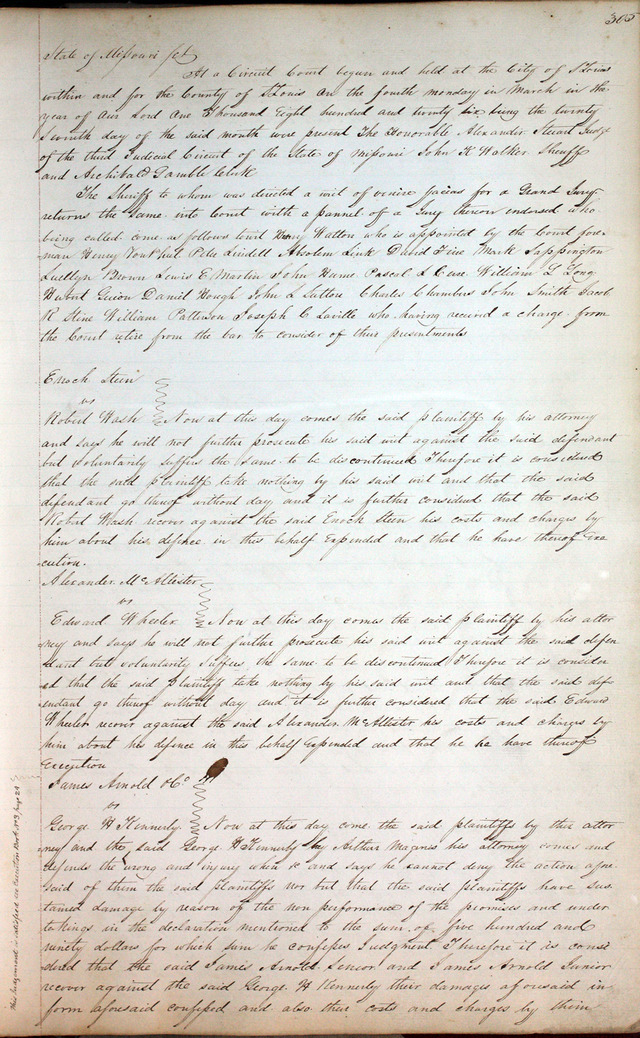 305
State of Missouri Sct
At a Circuit Court begun and held at the City of St Louis
within and for the County of St Louis on the fourth monday in March in the
year of Our Lord One Thousand Eight hundred and twenty six being the twenty
seventh day of the said month were present The Honorable Alexander Stuart Judge
of the third Judicial Circuit of the State of Missouri John K Walker Sheriff
and Archibald Gamble Clerk
The Sheriff to whom was directed a writ of venire facias for a Grand Jury
returns the same into Court with a pannel of a Jury thereon endorsed who
being called come as follows towit Henry Walton who is appointed by the Court fore-
man Henry Peter Lindell Absolem Link David Fine Mark Sappington
Luellyn Brown Lewis E Martin John Hume Pascal L Cerre William L Long
Hubert Guion Daniel Hough John L Sutton Charles Chambers John Smith Jacob
R Stine William Patterson Joseph C Laville who having received a charge from
the Court retire from the bar to consider of their presentments
Enoch Steen
vs
Robert Wash Now at this day comes the said plaintiff by his attorney
and says he will not further prosecute his said writ against the said defendant
but voluntarily suffers the same to be discontinued Therefore it is considered
that the said plaintiff take nothing by his said writ and that the said
defendant go thereof without day and it is further considered that the said
Robert Wash recover against the said Enoch Steen his costs and charges by
him about his defence in this behalf Expended and that he have thereof Exe
cution.
Alexander McAllester
vs
Edward Wheeler Now at this day comes the said plaintiff by his attor
ney and says he will not further prosecute his said writ against the said defen
dant but voluntarily suffers the same to be discontinued Therefore it is consider
ed that the said plaintiff take nothing by his said writ and that the said def
endant go thereof without day and it is further considered that the said Edward
Wheeler recover against the said Alexander McAllester his costs and charges by
him about his defence in this behalf Expended and that he he have thereof
Execution
James Arnold &Co
vs
George H Kennerly Now at this day come the said plaintiffs by their attor
ney and the said George H Kennerly by Arthur Magenis his attorney comes and
defends the wrong and injury when &c and says he cannot deny the action afore
said of them the said plaintiffs nor but that the said plaintiffs have sus
tained damage by reason of the non performance of the promises and under
takings in the declaration mentioned to the sum of five hundred and
ninety dollars for which sum he confesses Judgment Therefore it is consi
dered that the said James Arnold Senior and James Arnold Junior
recover against the said George H Kennerly their damages aforesaid in
form aforesaid confessed and also their costs and charges by them
This Judgment is satisfied see Execution Book No 3 page 29